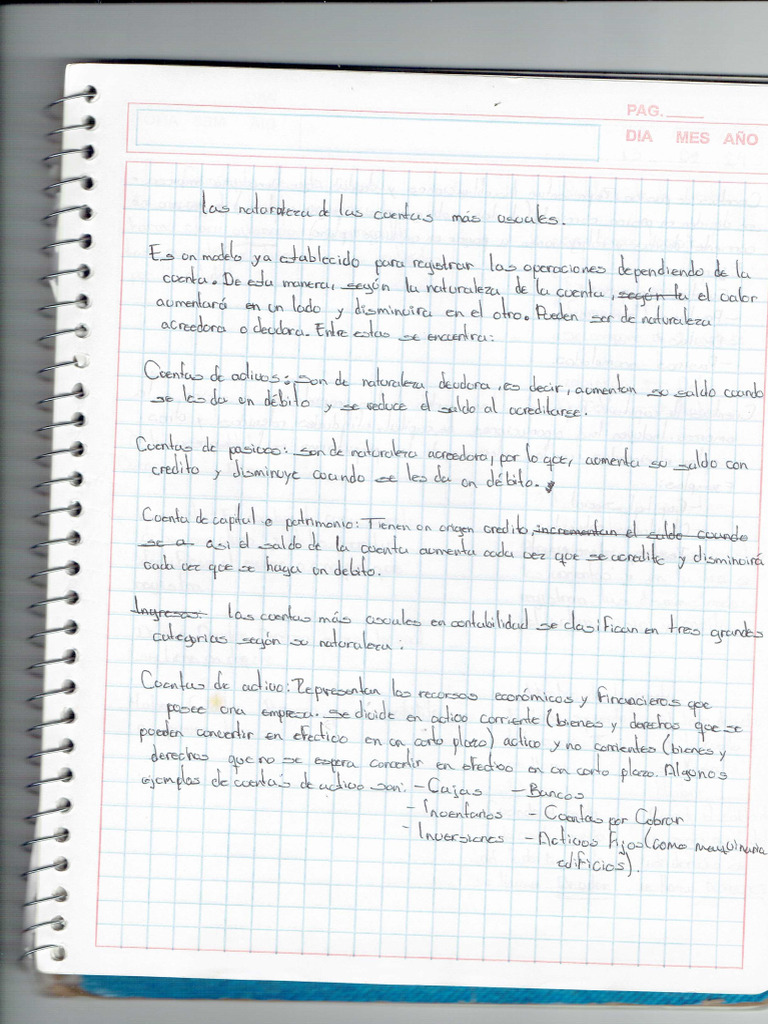 PAG.
DIA MES AÑO
Las naturaleza de las cuentas más usuales.
Es un modelo ya establecido para registrar las operaciones dependiendo de la
cuenta. De esta manera, según la naturaleza de la cuenta, según la el valor
aumentará en un lado y disminuira en el otro. Pueden ser de naturaleza
acreedora o deudora. Entre estas se encuentra:
Cuentas de activos: son de naturaleza deudora, es decir, aumentan su saldo cuando
se les da un débito y se reduce el saldo al acreditarse.
Cuentas de pasivos: son de naturaleza acreedora, por lo que, aumenta su saldo con
credito y disminuye cuando se les da un débito.
Cuenta de capital o patrimonio: Tienen un origen credito, incrementan el saldo cuando
se a asi el saldo de la cuenta aumenta cada vez que se acredite y disminuirá
cada vez que se haga un debito.
Ingresos las cuentas más usuales en contabilidad se clasifican en tres grandes
categorias según su naturaleza:
Cuentas de activo: Representan los recursos económicos y financieros que
posee una empresa. se divide en activo corriente (bienes y derechos que se
pueden convertir en efectivo en un corto plazo) activo y no corrientes (bienes y
derechos que no se espera convertir en efectivo en un corto plazo. Algunos
ejemplos de cuentas de activo son: - Cajas - Bancos
- Inventarios - Cuentas por Cobrar
- Inversiones - Activos Fijos (como maquinaria
edificios).